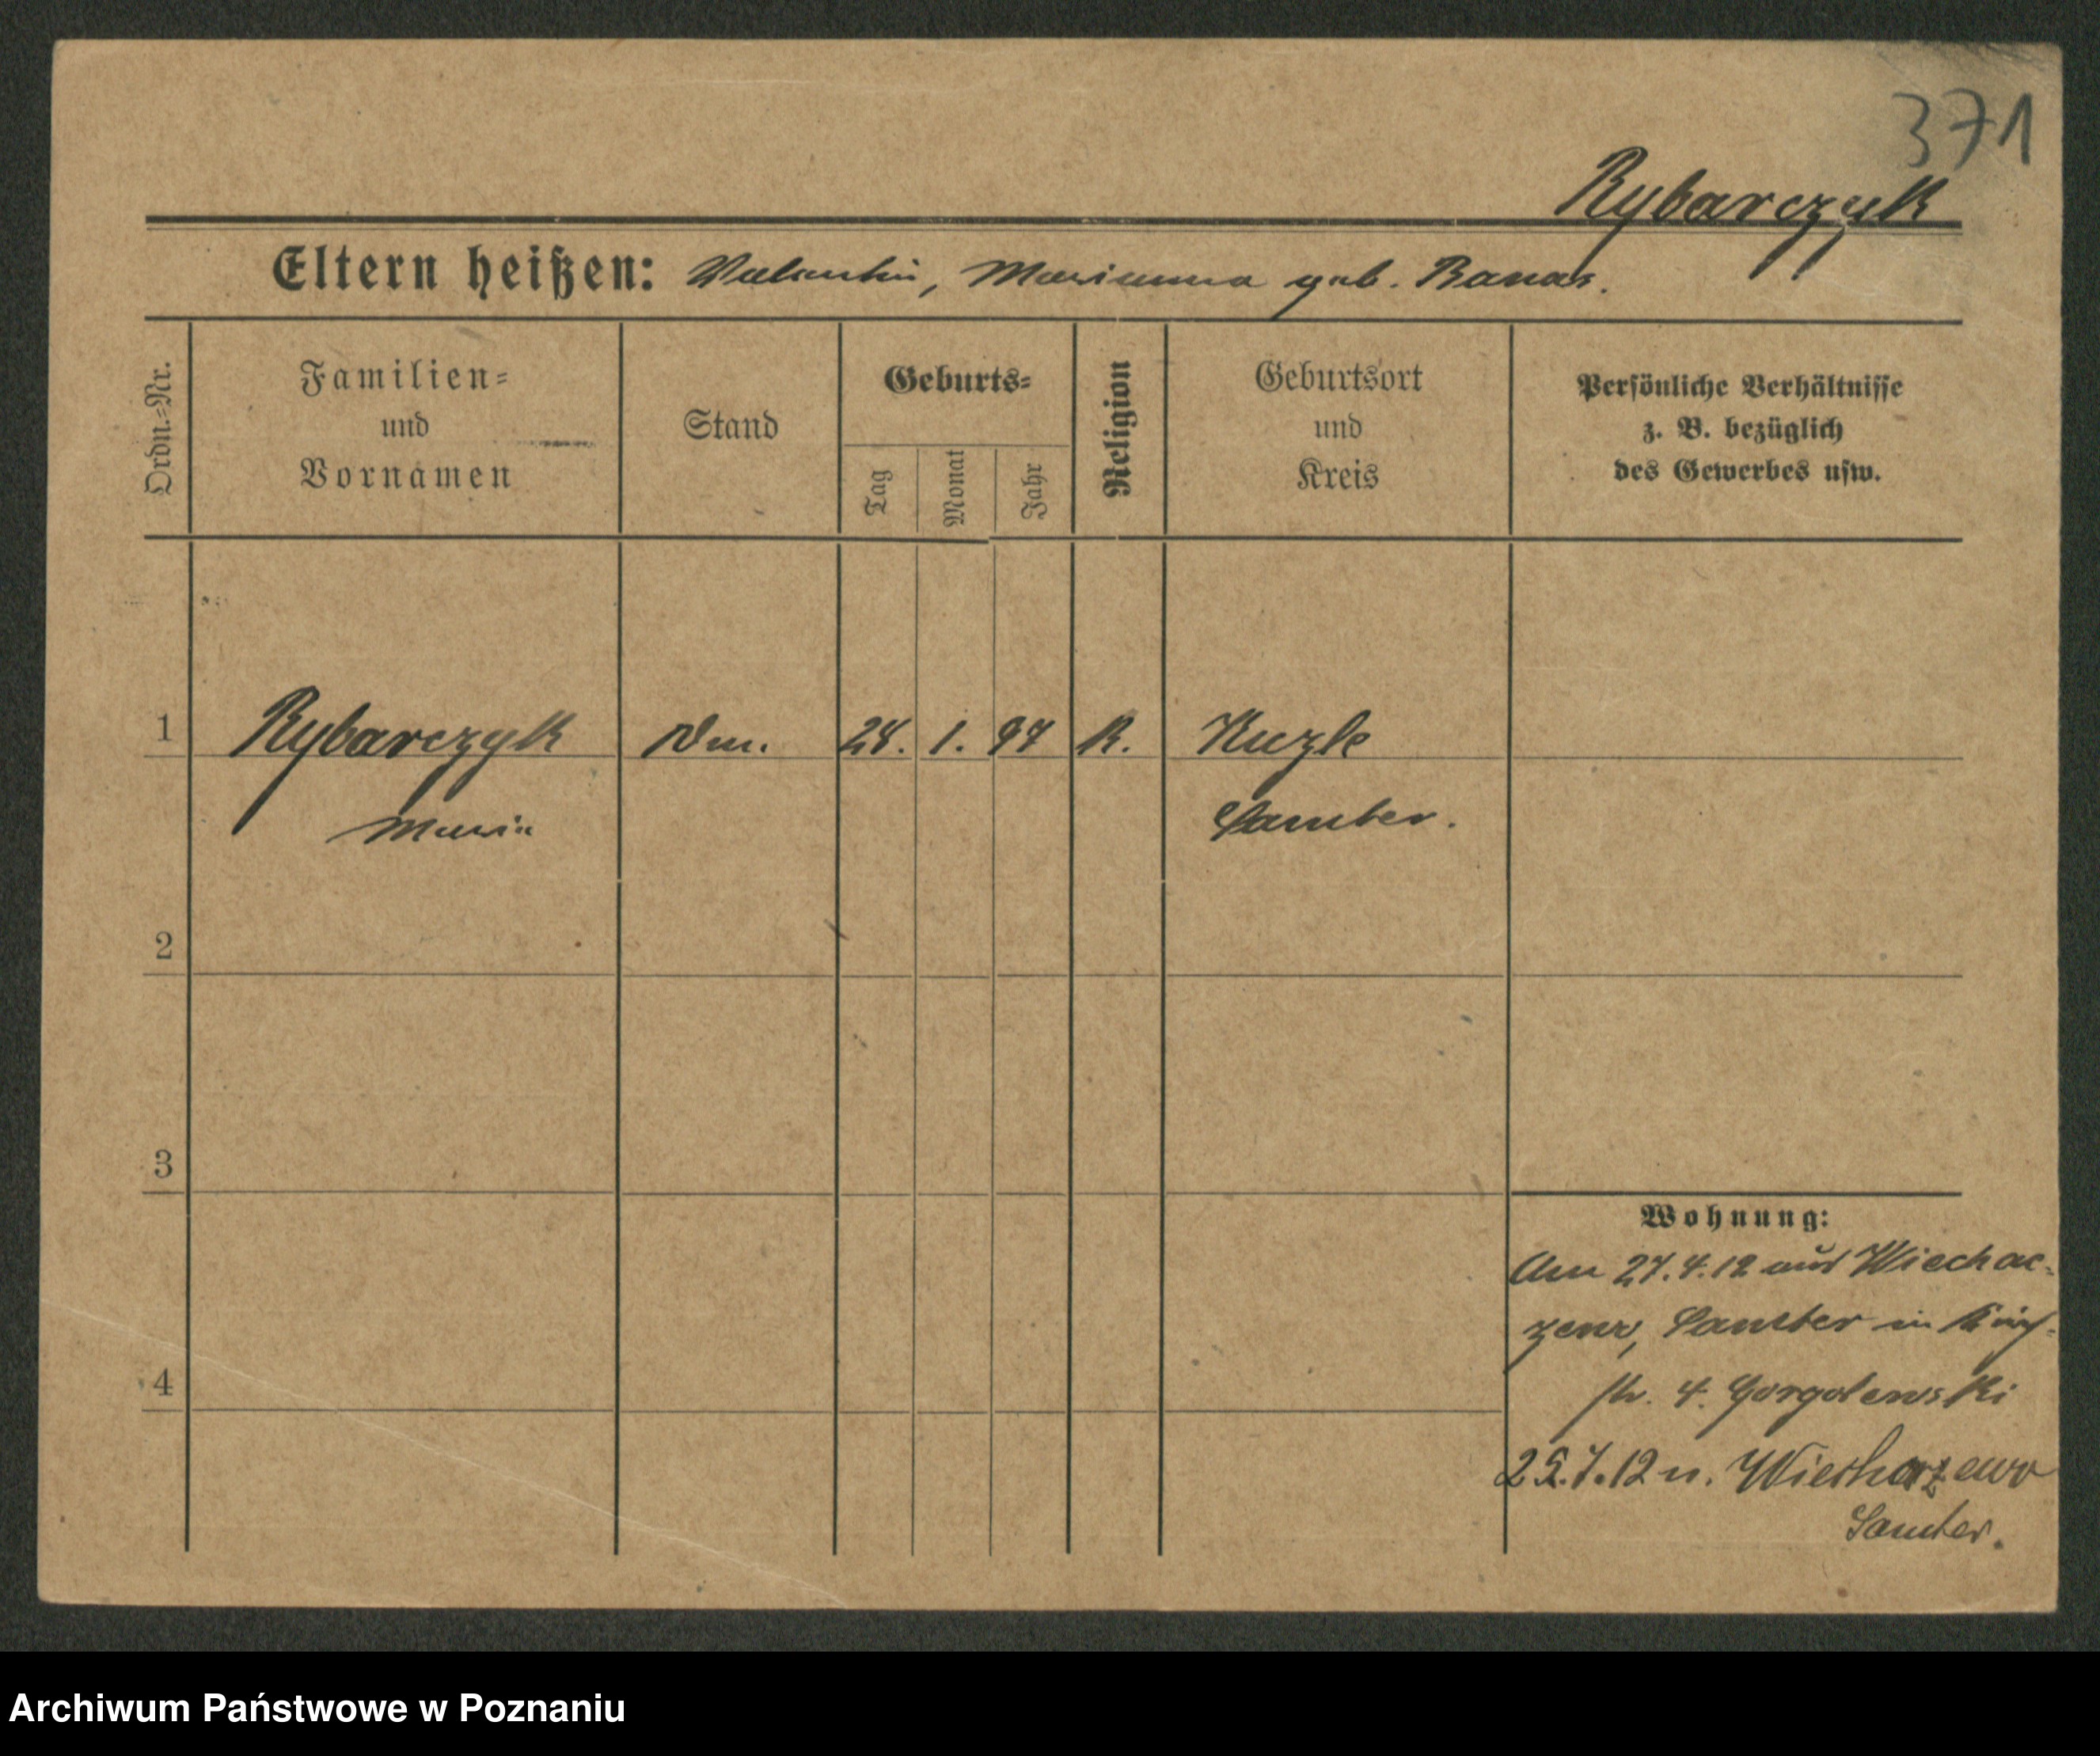 371
Rybarczyk
Eltern heißen: Valentin, Marianna geb. Banas.
Ordn.=Nr.
Familien=
und
Vornamen
Stand
Geburts=
Tag
Monat
Jahr
Religion
Geburtsort
und
Kreis
Persönliche Verhältnisse
z. B. bezüglich
des Gewerbes usw.
1 Rybarczyk 1. 97 K. Kuzle
Maria Samter.
2
3
4
Wohnung:
Am 27.4.12 aus Wiechac-
zewo, Samter in
str. 4. Gorgolewski
25.7.12 n. Wiecharzewo
Samter.
Archiwum Państwowe w Poznaniu